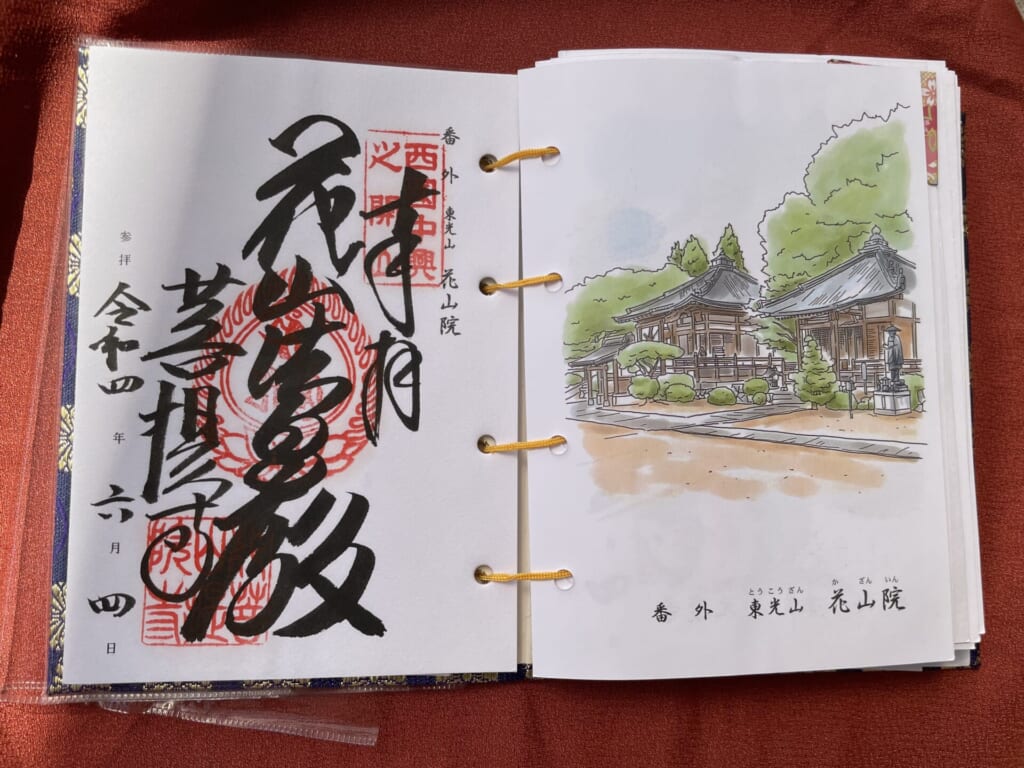 番外 東光山 花山院
西國中興
之開山
奉拝
花山法皇殿
菩提寺
参拝 令和四年六月四日
とうこうざん か ざん いん
番外 東光山 花山院